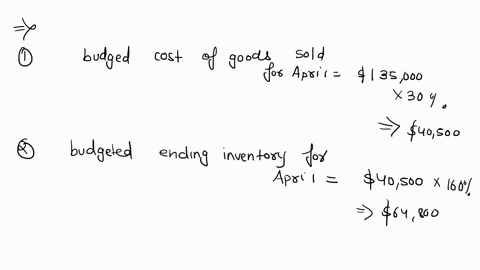 =>
① budged cost of goods sold
for April = $135,000
× 30%.
=> $40,500
② budgeted ending inventory for
April = $40,500 × 160%
=> $64,800